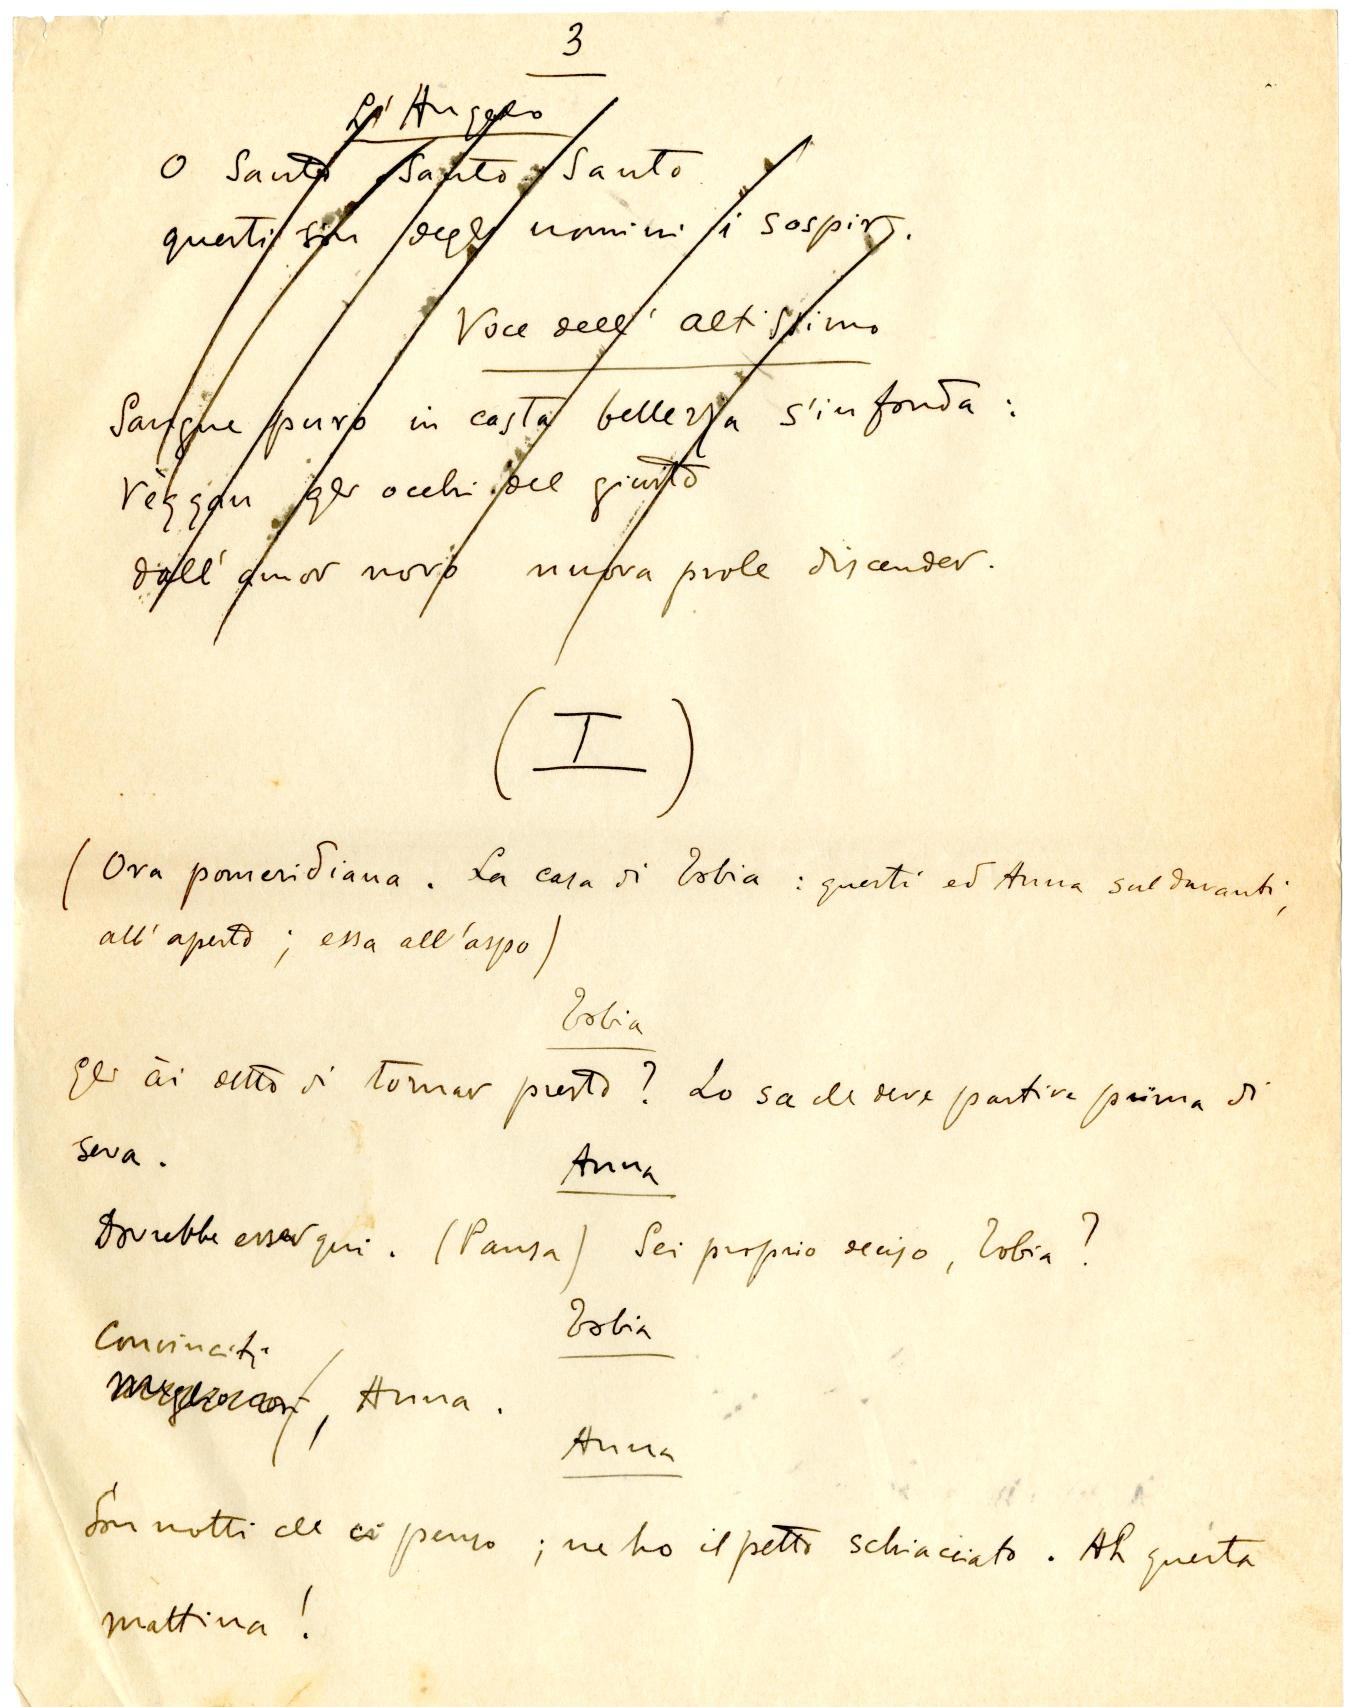 3
L'Angelo
O Santo Santo Santo
questi son degli uomini i sospiri.
Voce dell'altissimo
Sangue puro in casta bellezza s'infonda:
Vèggan gli occhi del giusto
dall'amor novo nuova prole discender.
(I)
(Ora pomeridiana. La casa di Tobia: questi ed Anna sul davanti,
all'aperto; essa all'aspo)
Tobia
Gli ài detto di tornar presto? Lo sa che deve partire prima di
sera.
Anna
Dovrebbe esser qui. (Pausa) Sei proprio deciso, Tobia?
Tobia
Convinciti
, Anna.
Anna
Son notti che ci penso; ne ho il petto schiacciato. Ah questa
mattina!